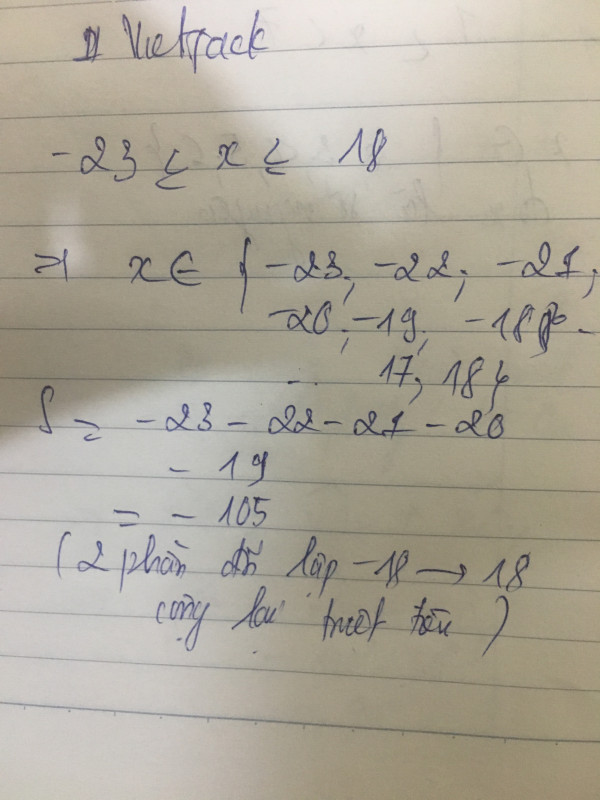 Vietjack
-23 ≤ x ≤ 18
=> x ∈ { -23; -22; -21;
-20; -19; -18; ...
... 17; 18}
S = -23 - 22 - 21 - 20
- 19
= - 105
(2 phần đối lập -18 → 18
cộng lại triệt tiêu)